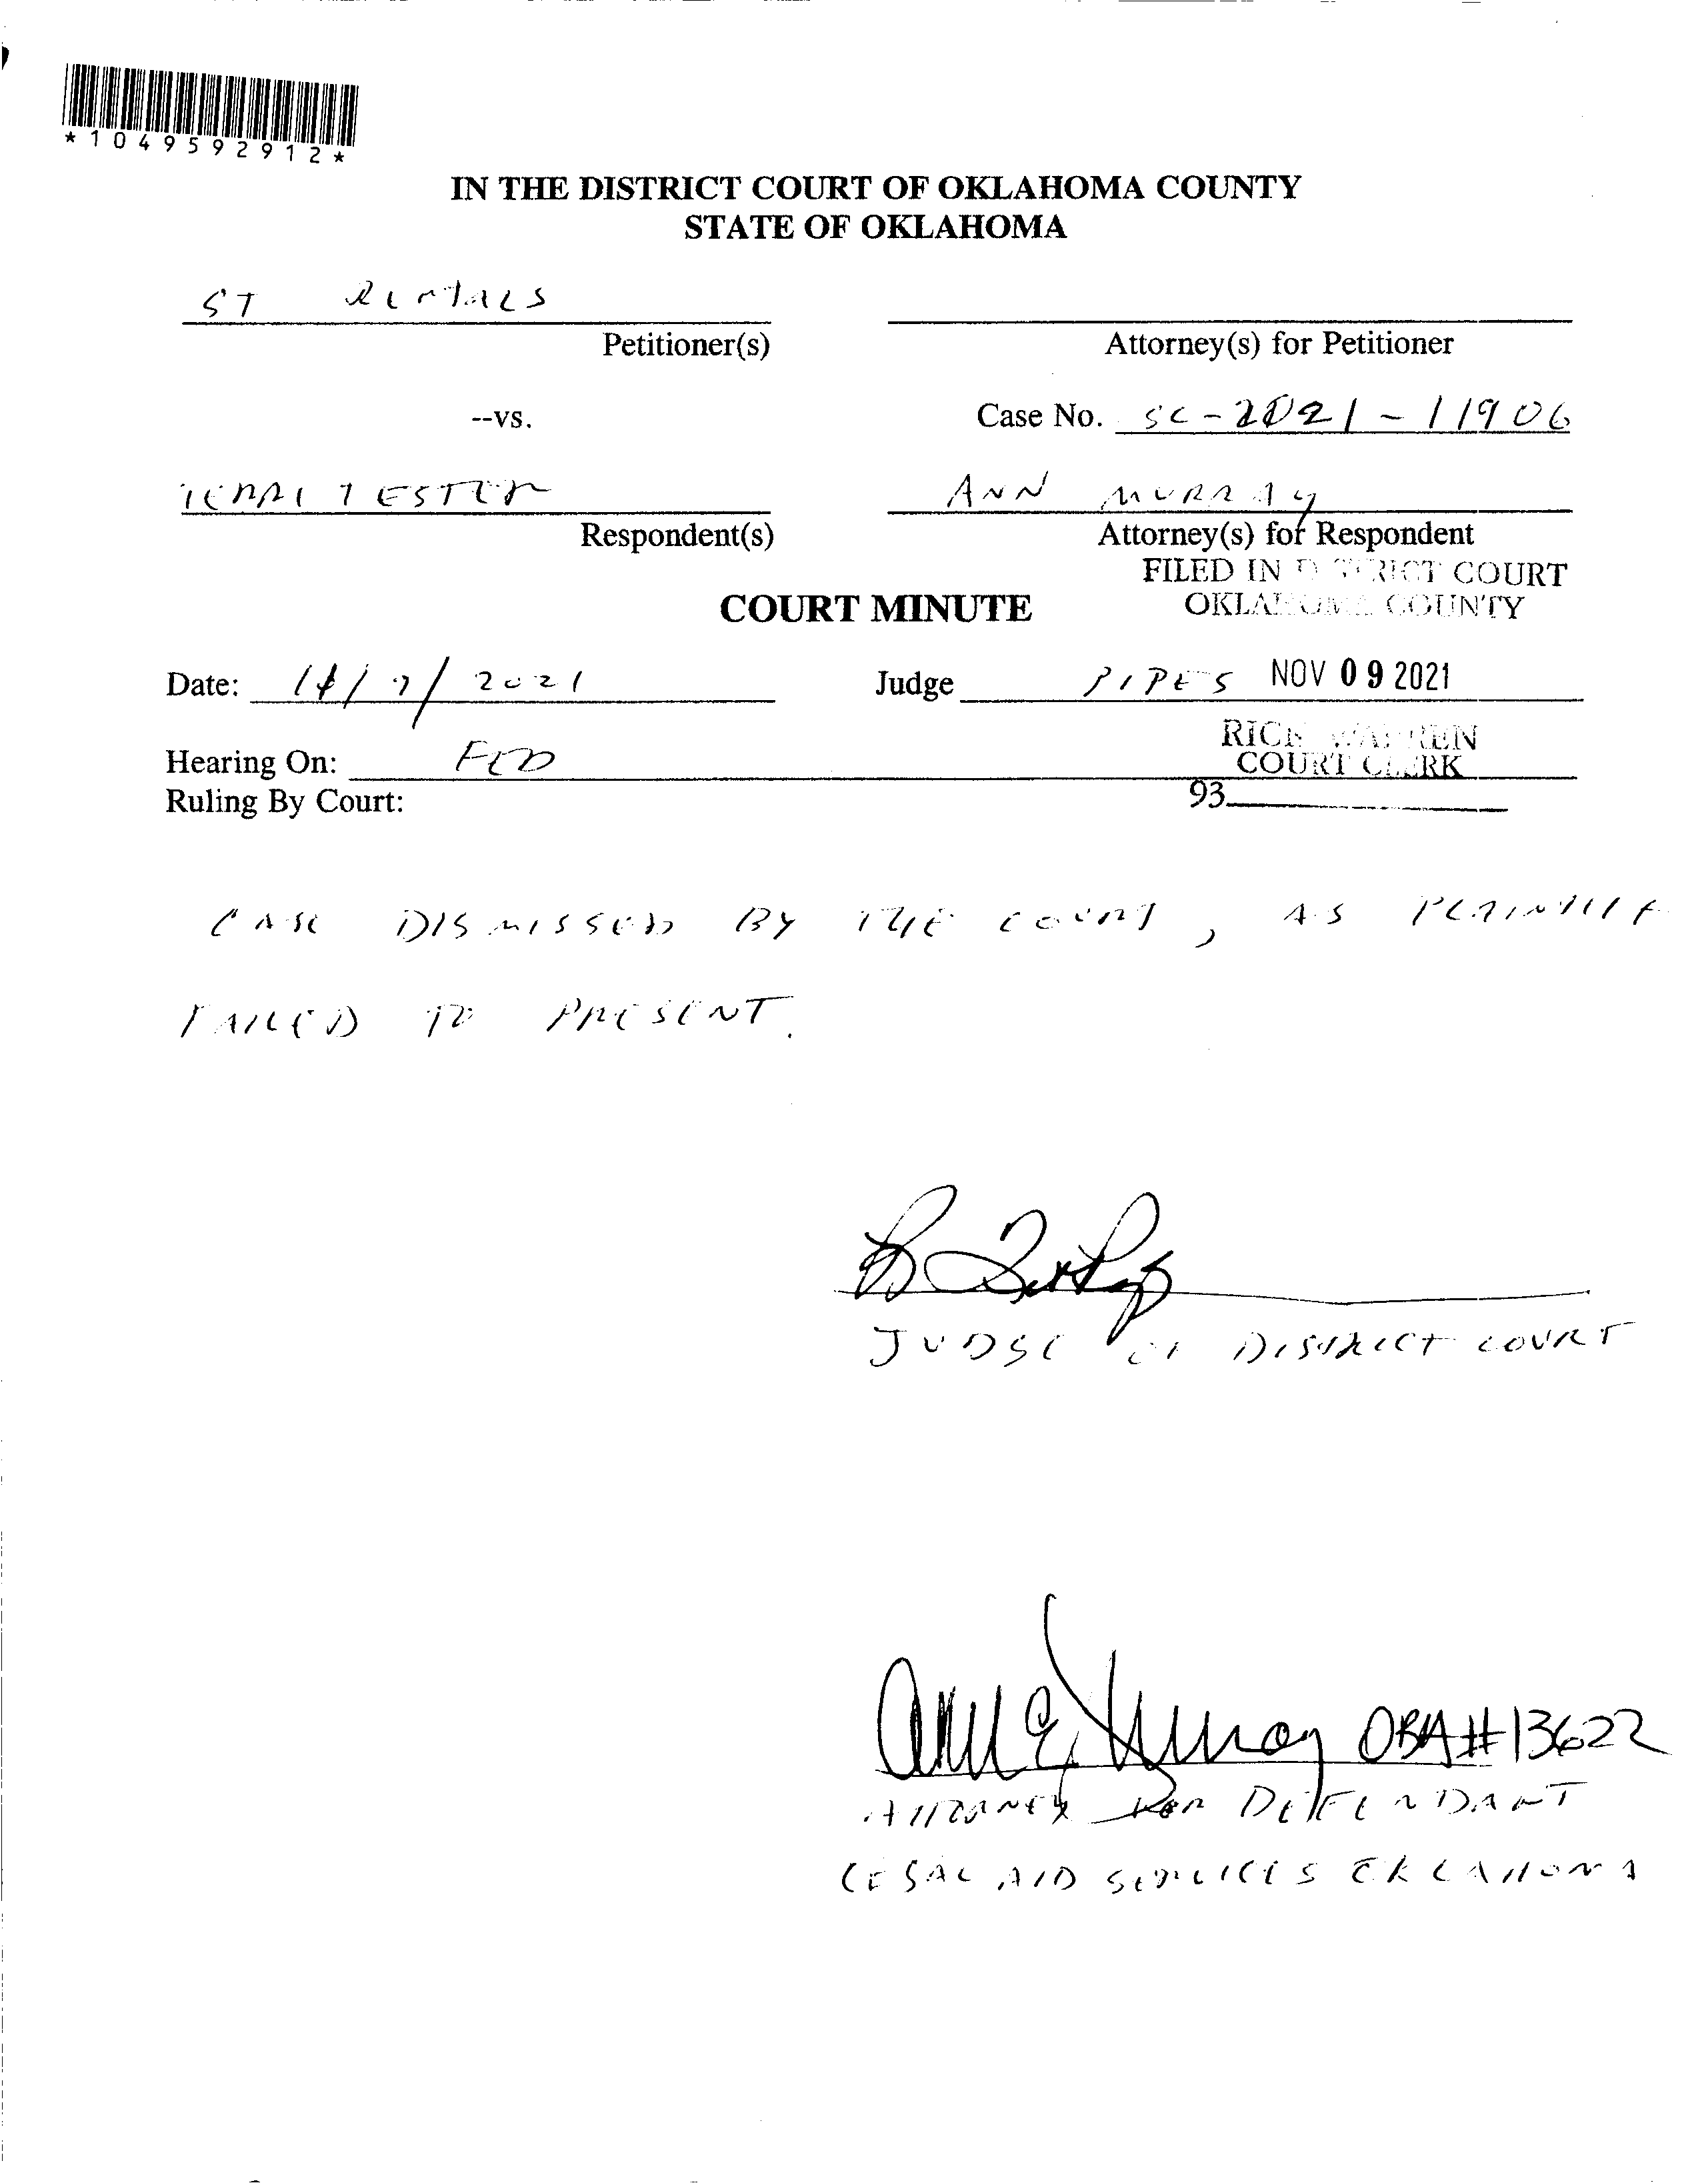 *1049592912*
IN THE DISTRICT COURT OF OKLAHOMA COUNTY
STATE OF OKLAHOMA
ST RENTALS
Petitioner(s)
Attorney(s) for Petitioner
--vs.
Case No. SC-2021-11906
TERRI TESTER
ANN MURRAY
Respondent(s)
Attorney(s) for Respondent
FILED IN DISTRICT COURT
OKLAHOMA COUNTY
COURT MINUTE
Date: 11/9/2021
Judge PIPES
NOV 09 2021
RICK WARREN
COURT CLERK
Hearing On: FED
Ruling By Court:
93
CASE DISMISSED BY THE COURT, AS PLAINTIFF
FAILED TO PRESENT.
JUDGE OF DISTRICT COURT
Ann E. Murray OBA#13622
ATTORNEY FOR DEFENDANT
LEGAL AID SERVICES OKLAHOMA